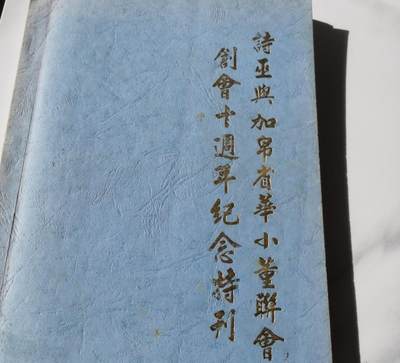 詩巫與加帛省華小董聯會
創會十週年紀念特刊